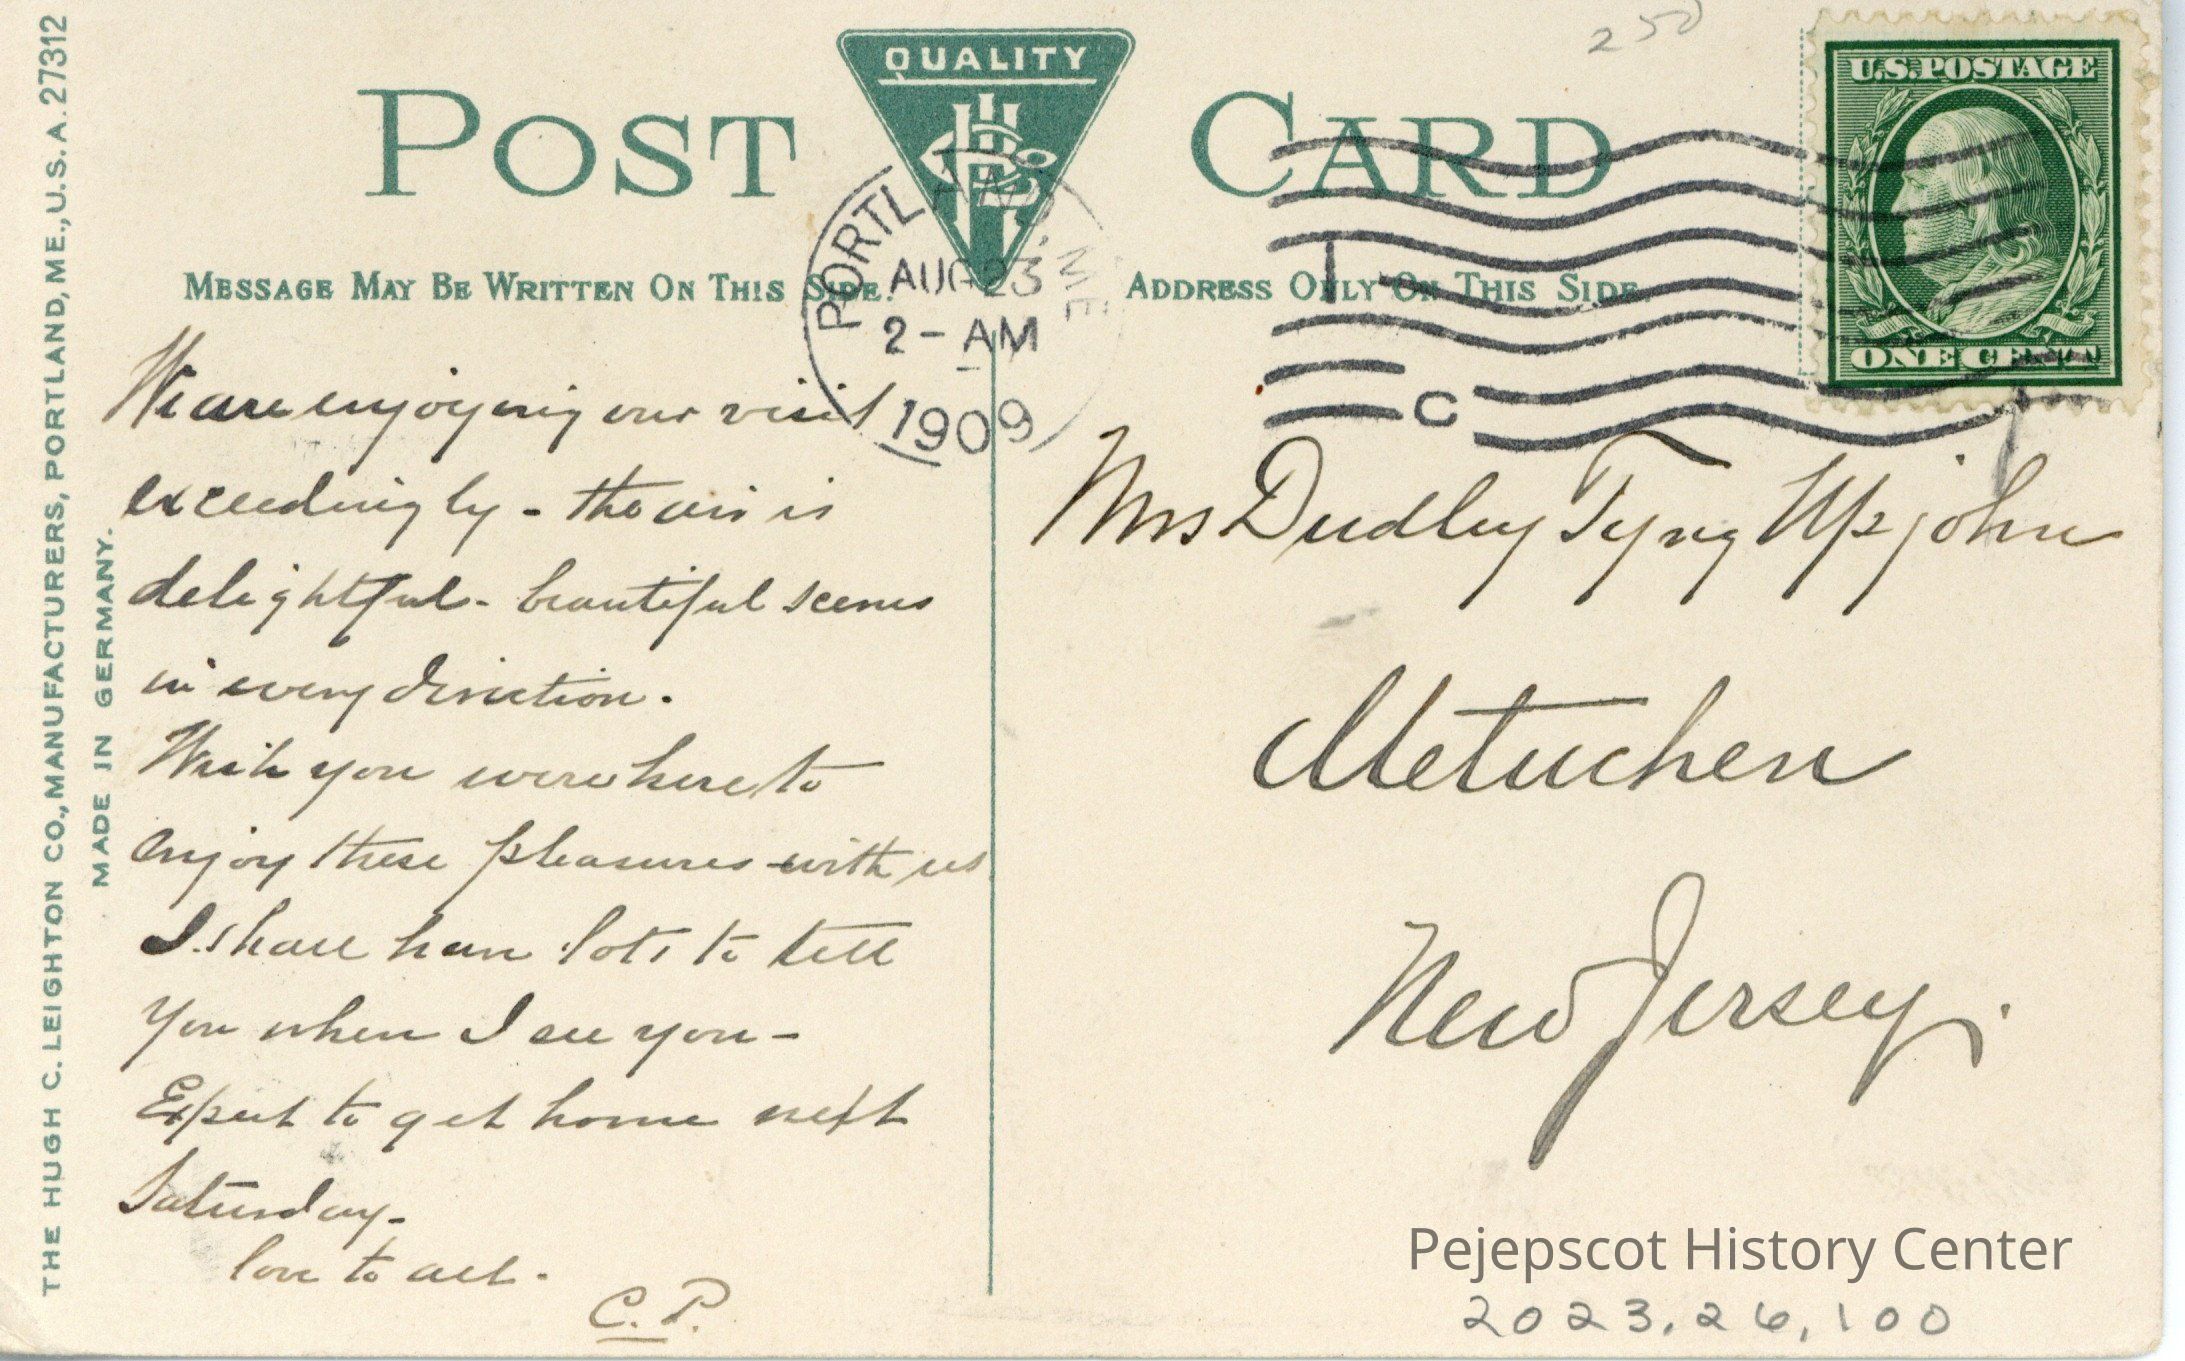 THE HUGH C. LEIGHTON CO., MANUFACTURERS, PORTLAND, ME., U.S.A. 27312
MADE IN GERMANY.
250
QUALITY
POST CARD
U.S. POSTAGE
ONE CENT
PORTLAND, ME.
AUG 23
2 - AM
1909
C
MESSAGE MAY BE WRITTEN ON THIS SIDE.
ADDRESS ONLY ON THIS SIDE.
We are enjoying our visit
exceedingly - the air is
delightful - beautiful scenes
in every direction.
Wish you were here to
enjoy these pleasures with us
I shall have lots to tell
you when I see you -
Expect to get home next
Saturday -
love to all.
C. P.
Mrs Dudley Tyng Upjohn
Metuchen
New Jersey.
Pejepscot History Center
2023.26.100